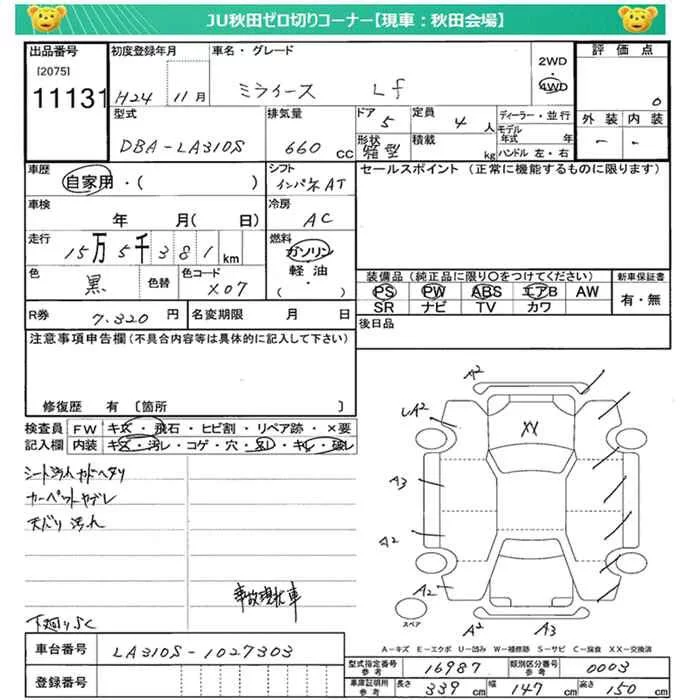 JU秋田ゼロ切りコーナー【現車：秋田会場】
出品番号 初度登録年月 車名・グレード 2WD 評価点
[2075] H24 11月 ミライース Lf 4WD 0
11131
型式 排気量 ドア 定員 ディーラー・並行 外装 内装
DBA-LA310S 660 CC 5 4 人 モデル年式 年 - -
形状 積載 ハンドル 左・右
箱型 kg
車歴 シフト セールスポイント(正常に機能するものに限ります)
自家用・( ) インパネAT
車検 冷房
年 月( 日) AC
走行 燃料
15万5千381km ガソリン
色 色替 色コード 軽油
黒 X07 ・( )
装備品(純正品に限り○をつけてください) 新車保証書
PS PW ABS エアB AW 有・無
SR ナビ TV カワ
R券 7.320 円 名変期限 月 日 後日品
注意事項申告欄(不具合内容等は具体的に記入して下さい)
修復歴 有 〔箇所 〕
検査員 FW キズ・飛石・ヒビ割・リペア跡・×要
記入欄 内装 キズ・汚レ・コゲ・穴・・キレ・破レ
シート汚れ ヘタリ
カーペット
天バリ 汚れ
事故現状車
下廻りsく
A2
A2
XX
A3
A2
A2
スペア A2 A3
A-キズ E-エクボ U-凹み W-補修跡 S-サビ C-腐食 XX-交換済
車台番号 LA310S-1027303
型式指定番号参考 16987 類別区分番号参考 0003
登録番号 車庫証明用参考 長さ 339 cm 幅 147 cm 高さ 150 cm